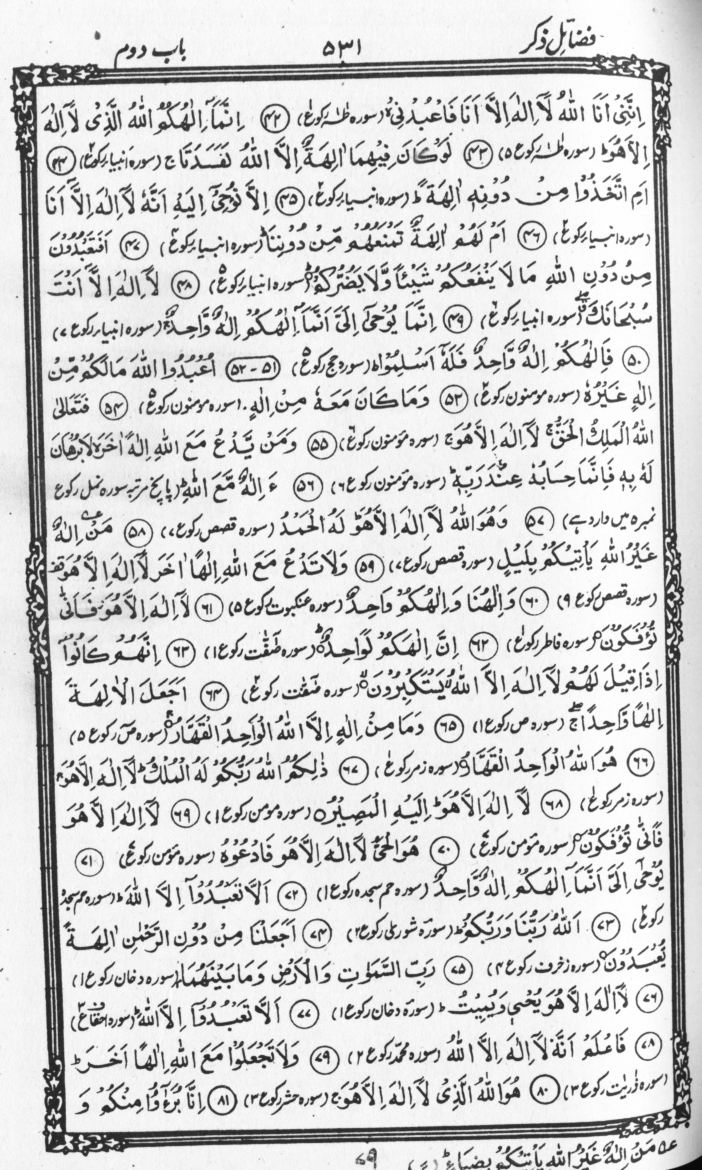 فضائل ذکر ۵۳۱ باب دوم
اِنَّنِیْ اَنَا اللّٰهُ لَآ اِلٰهَ اِلَّآ اَنَا فَاعْبُدْنِیْ (سورہ طٰہٰ رکوع ۱) (۴۲) اِنَّمَآ اِلٰهُكُمُ اللّٰهُ الَّذِیْ لَآ اِلٰهَ
اِلَّا هُوَ (سورہ طٰہٰ رکوع ۵) (۴۳) لَوْ كَانَ فِیْهِمَآ اٰلِهَةٌ اِلَّا اللّٰهُ لَفَسَدَتَا ج (سورہ انبیاء رکوع ۲) (۴۴)
اَمِ اتَّخَذُوْا مِنْ دُوْنِهٖٓ اٰلِهَةً ط (سورہ انبیاء رکوع ۲) (۴۵) اِلَّا نُوْحِیْٓ اِلَیْهِ اَنَّهٗ لَآ اِلٰهَ اِلَّآ اَنَا
(سورہ انبیاء رکوع ۲) (۴۶) اَمْ لَهُمْ اٰلِهَةٌ تَمْنَعُهُمْ مِّنْ دُوْنِنَا ط (سورہ انبیاء رکوع ۴) (۴۷) اَفَتَعْبُدُوْنَ
مِنْ دُوْنِ اللّٰهِ مَا لَا یَنْفَعُكُمْ شَیْئًا وَّلَا یَضُرُّكُمْ (سورہ انبیاء رکوع ۵) (۴۸) لَآ اِلٰهَ اِلَّآ اَنْتَ
سُبْحَانَكَ (سورہ انبیاء رکوع ۶) (۴۹) اِنَّمَا یُوْحٰٓی اِلَیَّ اَنَّمَآ اِلٰهُكُمْ اِلٰهٌ وَّاحِدٌ (سورہ انبیاء رکوع ۷)
(۵۰) فَاِلٰهُكُمْ اِلٰهٌ وَّاحِدٌ فَلَهٗٓ اَسْلِمُوْا ط (سورہ حج رکوع ۵) (۵۱ - ۵۲) اُعْبُدُوا اللّٰهَ مَا لَكُمْ مِّنْ
اِلٰهٍ غَیْرُهٗ (سورہ مومنون رکوع ۲) (۵۳) وَمَا كَانَ مَعَهٗ مِنْ اِلٰهٍ (سورہ مومنون رکوع ۵) (۵۴) فَتَعَالَی
اللّٰهُ الْمَلِكُ الْحَقُّ ج لَآ اِلٰهَ اِلَّا هُوَ ج (سورہ مومنون رکوع ۶) (۵۵) وَمَنْ یَّدْعُ مَعَ اللّٰهِ اِلٰهًا اٰخَرَ لَا بُرْهَانَ
لَهٗ بِهٖ فَاِنَّمَا حِسَابُهٗ عِنْدَ رَبِّهٖ ط (سورہ مومنون رکوع ۶) (۵۶) ءَاِلٰهٌ مَّعَ اللّٰهِ ط (پانچ مرتبہ سورہ نمل رکوع
نمبر۵ میں وارد ہے) (۵۷) وَهُوَ اللّٰهُ لَآ اِلٰهَ اِلَّا هُوَ ط لَهُ الْحَمْدُ (سورہ قصص رکوع ۷) (۵۸) مَنْ اِلٰهٌ
غَیْرُ اللّٰهِ یَاْتِیْكُمْ بِلَیْلٍ (سورہ قصص رکوع ۷) (۵۹) وَلَا تَدْعُ مَعَ اللّٰهِ اِلٰهًا اٰخَرَ لَآ اِلٰهَ اِلَّا هُوَ قف
(سورہ قصص رکوع ۹) (۶۰) وَاِلٰهُنَا وَاِلٰهُكُمْ وَاحِدٌ (سورہ عنکبوت رکوع ۵) (۶۱) لَآ اِلٰهَ اِلَّا هُوَ ز فَاَنّٰی
تُؤْفَكُوْنَ (سورہ فاطر رکوع ۱) (۶۲) اِنَّ اِلٰهَكُمْ لَوَاحِدٌ (سورہ صٰفّٰت رکوع ۱) (۶۳) اِنَّهُمْ كَانُوْٓا
اِذَا قِیْلَ لَهُمْ لَآ اِلٰهَ اِلَّا اللّٰهُ یَسْتَكْبِرُوْنَ (سورہ صٰفّٰت رکوع ۲) (۶۴) اَجَعَلَ الْاٰلِهَةَ
اِلٰهًا وَّاحِدًا (سورہ ص رکوع ۱) (۶۵) وَمَا مِنْ اِلٰهٍ اِلَّا اللّٰهُ الْوَاحِدُ الْقَهَّارُ (سورہ ص رکوع ۵)
(۶۶) هُوَ اللّٰهُ الْوَاحِدُ الْقَهَّارُ (سورہ زمر رکوع ۱) (۶۷) ذٰلِكُمُ اللّٰهُ رَبُّكُمْ لَهُ الْمُلْكُ ط لَآ اِلٰهَ اِلَّا هُوَ ج
(سورہ زمر رکوع ۱) (۶۸) لَآ اِلٰهَ اِلَّا هُوَ ط اِلَیْهِ الْمَصِیْرُ ○ (سورہ مومن رکوع ۱) (۶۹) لَآ اِلٰهَ اِلَّا هُوَ
فَاَنّٰی تُؤْفَكُوْنَ (سورہ مومن رکوع ۷) (۷۰) هُوَ الْحَیُّ لَآ اِلٰهَ اِلَّا هُوَ فَادْعُوْهُ (سورہ مومن رکوع ۷) (۷۱)
یُوْحٰٓی اِلَیَّ اَنَّمَآ اِلٰهُكُمْ اِلٰهٌ وَّاحِدٌ (سورہ حم سجدہ رکوع ۱) (۷۲) اَلَّا تَعْبُدُوْٓا اِلَّا اللّٰهَ ط (سورہ حم سجدہ
رکوع ۲) (۷۳) اَللّٰهُ رَبُّنَا وَرَبُّكُمْ ط (سورہ شوریٰ رکوع ۲) (۷۴) اَجَعَلْنَا مِنْ دُوْنِ الرَّحْمٰنِ اٰلِهَةً
یُّعْبَدُوْنَ (سورہ زخرف رکوع ۴) (۷۵) رَبِّ السَّمٰوٰتِ وَالْاَرْضِ وَمَا بَیْنَهُمَا (سورہ دخان رکوع ۱)
(۷۶) لَآ اِلٰهَ اِلَّا هُوَ یُحْیٖ وَیُمِیْتُ ط (سورہ دخان رکوع ۱) (۷۷) اَلَّا تَعْبُدُوْٓا اِلَّا اللّٰهَ ط (سورہ احقاف ع ۳)
(۷۸) فَاعْلَمْ اَنَّهٗ لَآ اِلٰهَ اِلَّا اللّٰهُ (سورہ محمد رکوع ۲) (۷۹) وَلَا تَجْعَلُوْا مَعَ اللّٰهِ اِلٰهًا اٰخَرَ ط
(سورہ ذریٰت رکوع ۳) (۸۰) هُوَ اللّٰهُ الَّذِیْ لَآ اِلٰهَ اِلَّا هُوَ ج (سورہ حشر رکوع ۳) (۸۱) اِنَّا بُرَءٰٓؤُا مِنْكُمْ وَ
مَنْ اِلٰهٌ غَیْرُ اللّٰهِ یَاْتِیْكُمْ بِضِیَآءٍ ط